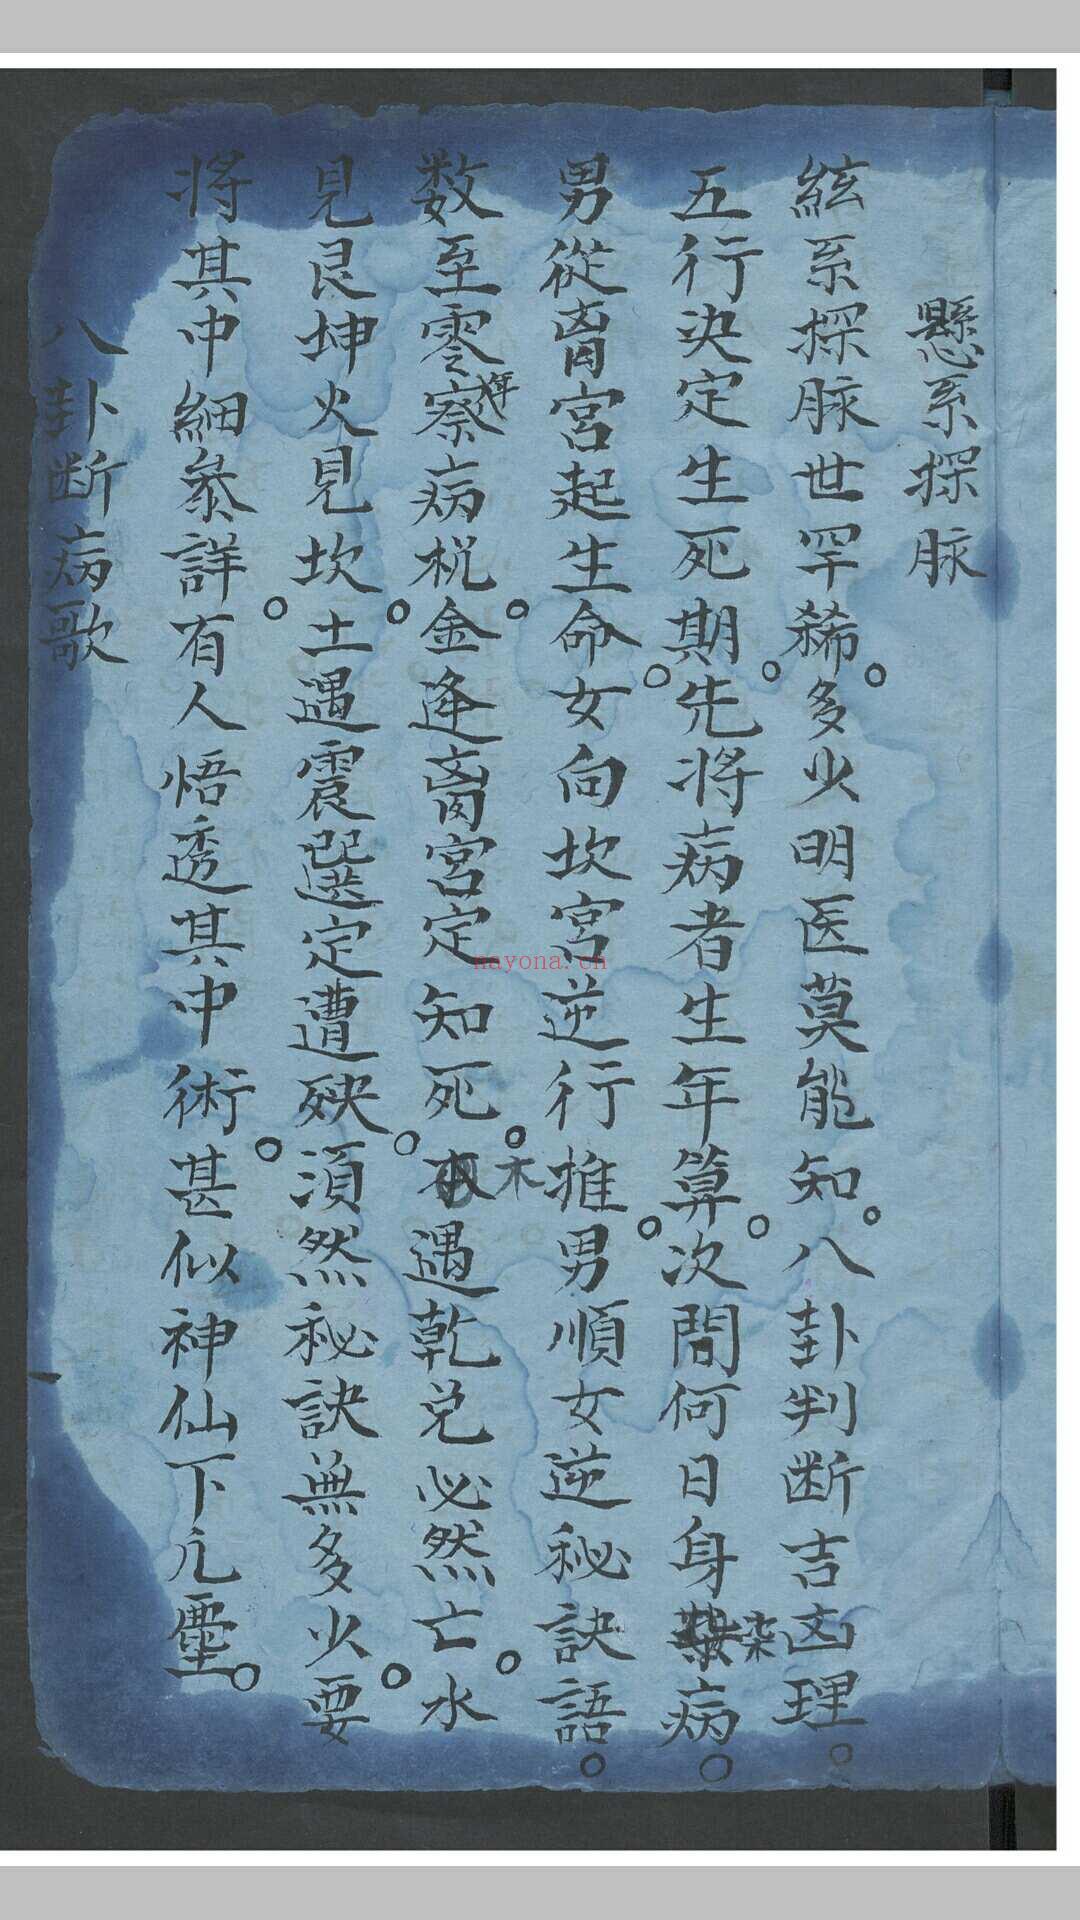 懸系探脉
絃系探脉世罕稀。多少明医莫能知。八卦判断吉凶理。
五行决定生死期。先将病者生年算。次問何日身染病。
男從离宮起生命。女向坎宮逆行推。男順女逆秘訣語。
数至零年察病根。金逢离宮定知死。木遇乾兑必然亡。水
見艮坤火見坎。土遇震巽定遭殃。須然秘訣無多少。要
将其中細叅詳。有人悟透其中術。甚似神仙下凢塵。
八卦断病歌
nayona.cn